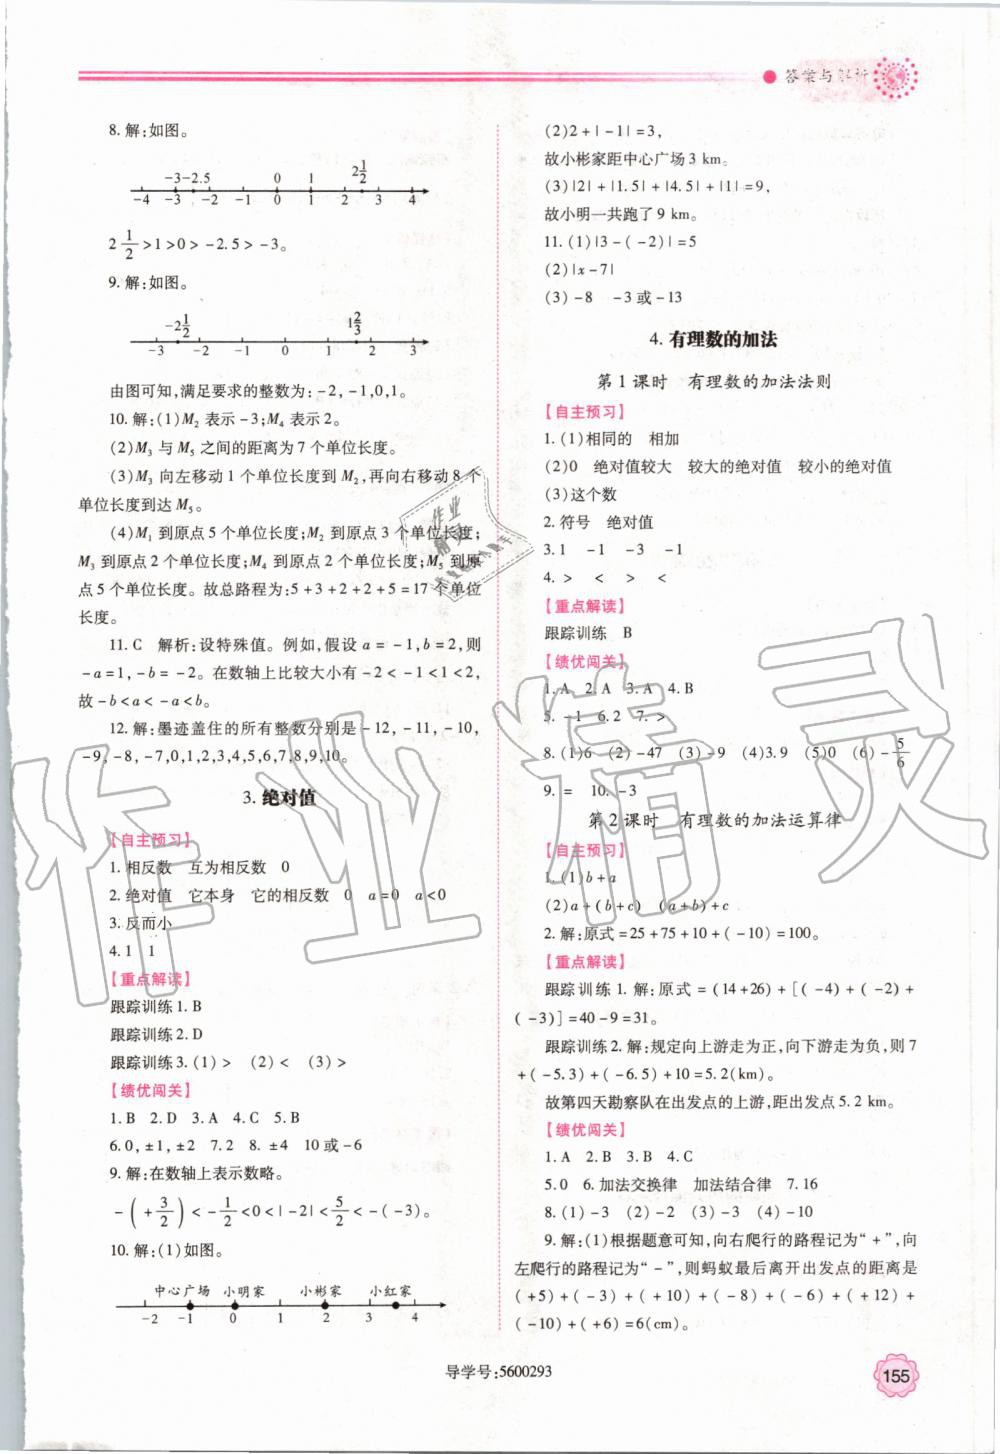 答案与解析
8. 解:如图。
-3-2.5 0 1 2 1/2
-4 -3 -2 -1 0 1 2 3 4
2 1/2>1>0>-2.5>-3。
9. 解:如图。
-2 1/2 1 2/3
-3 -2 -1 0 1 2 3
由图可知,满足要求的整数为:-2,-1,0,1。
10. 解:(1)M₂ 表示-3;M₄ 表示2。
(2)M₃ 与 M₅ 之间的距离为7个单位长度。
(3)M₃ 向左移动1个单位长度到 M₂,再向右移动8个
单位长度到达 M₅。
(4)M₁ 到原点5个单位长度;M₂ 到原点3个单位长度;
M₃ 到原点2个单位长度;M₄ 到原点2个单位长度;M₅ 到原
点5个单位长度。故总路程为:5+3+2+2+5=17个单位
长度。
11. C 解析:设特殊值。例如,假设 a=-1,b=2,则
-a=1,-b=-2。在数轴上比较大小有-2<-1<1<2,
故-b<a<-a<b。
12. 解:墨迹盖住的所有整数分别是-12,-11,-10,
-9,-8,-7,0,1,2,3,4,5,6,7,8,9,10。
3. 绝对值
【自主预习】
1. 相反数 互为相反数 0
2. 绝对值 它本身 它的相反数 0 a=0 a<0
3. 反而小
4. 1 1
【重点解读】
跟踪训练1. B
跟踪训练2. D
跟踪训练3. (1)> (2)< (3)>
【绩优闯关】
1. B 2. D 3. A 4. C 5. B
6. 0,±1,±2 7. 2 8. ±4 10或-6
9. 解:在数轴上表示数略。
-(+3/2)<-1/2<0<|-2|<5/2<-(-3)。
10. 解:(1)如图。
中心广场 小明家 小彬家 小红家
-2 -1 0 1 2 3 4
(2)2+|-1|=3,
故小彬家距中心广场3 km。
(3)|2|+|1.5|+|4.5|+|1|=9,
故小明一共跑了9 km。
11. (1)|3-(-2)|=5
(2)|x-7|
(3)-8 -3或-13
4. 有理数的加法
第1课时 有理数的加法法则
【自主预习】
1. (1)相同的 相加
(2)0 绝对值较大 较大的绝对值 较小的绝对值
(3)这个数
2. 符号 绝对值
3. 1 -1 -3 -1
4. > < > <
【重点解读】
跟踪训练 B
【绩优闯关】
1. A 2. A 3. A 4. B
5. -1 6. 2 7. >
8. (1)6 (2)-47 (3)-9 (4)3.9 (5)0 (6)-5/6
9. = 10. -3
第2课时 有理数的加法运算律
【自主预习】
1. (1)b+a
(2)a+(b+c) (a+b)+c
2. 解:原式=25+75+10+(-10)=100。
【重点解读】
跟踪训练1. 解:原式=(14+26)+[(-4)+(-2)+
(-3)]=40-9=31。
跟踪训练2. 解:规定向上游走为正,向下游走为负,则7
+(-5.3)+(-6.5)+10=5.2(km)。
故第四天勘察队在出发点的上游,距出发点5.2 km。
【绩优闯关】
1. A 2. B 3. B 4. C
5. 0 6. 加法交换律 加法结合律 7. 16
8. (1)-3 (2)-2 (3)-3 (4)-10
9. 解:(1)根据题意可知,向右爬行的路程记为“+”,向
左爬行的路程记为“-”,则蚂蚁最后离开出发点的距离是
(+5)+(-3)+(+10)+(-8)+(-6)+(+12)+
(-10)+(+6)=6(cm)。
作业精灵
导学号:5600293
155